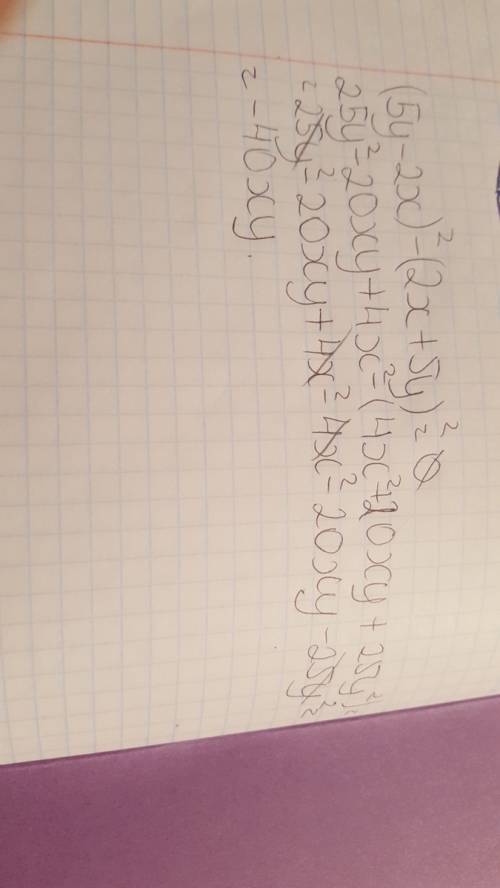 (5y-2x)²-(2x+5y)²=0
25y²-20xy+4x²-(4x²+20xy+25y²)=
=25y²-20xy+4x²-4x²-20xy-25y²=
=-40xy.